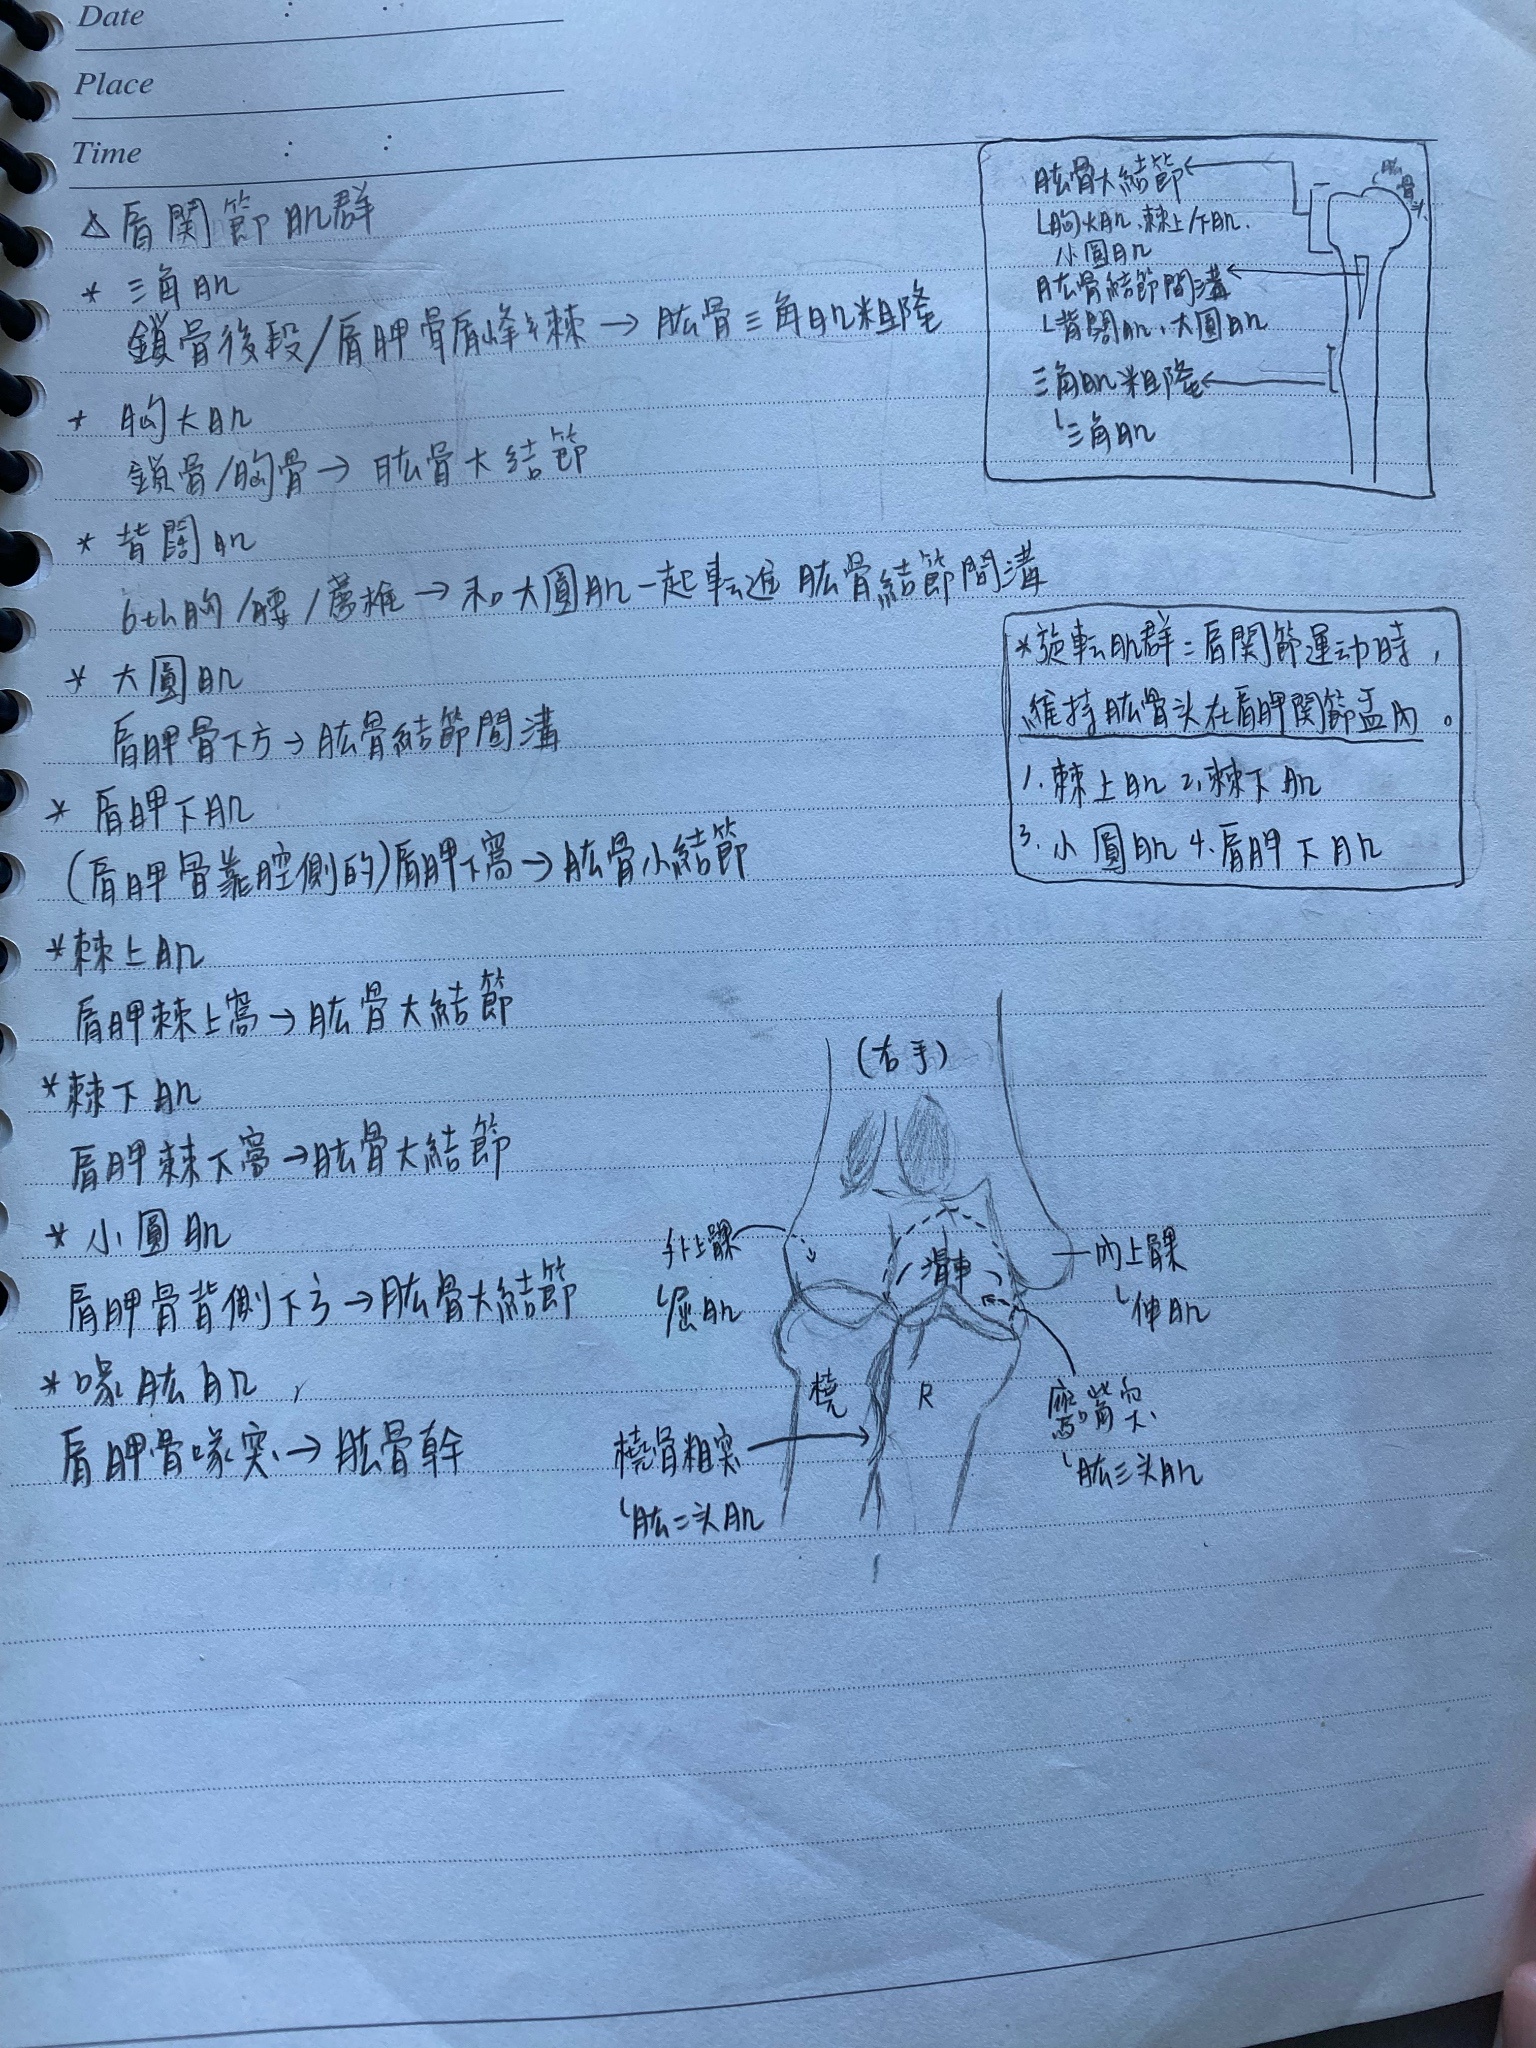 Date
Place
Time : :
△ 肩関節肌群
* 三角肌
鎖骨後段/肩胛骨肩峰&棘→肱骨三角肌粗隆
* 胸大肌
鎖骨/胸骨→肱骨大結節
* 背闊肌
6th胸/腰/薦椎→和大圓肌一起転進 肱骨結節間溝
* 大圓肌
肩胛骨下方→肱骨結節間溝
* 肩胛下肌
(肩胛骨靠腔側的)肩胛下窩→肱骨小結節
*棘上肌
肩胛棘上窩→肱骨大結節
*棘下肌
肩胛棘下窩→肱骨大結節
* 小圓肌
肩胛骨背側下方→肱骨大結節
*喙肱肌
肩胛骨喙突→肱骨幹
肱骨大結節
胸大肌、棘上/下肌、
小圓肌
肱骨結節間溝
背闊肌、大圓肌
三角肌粗隆
三角肌
骨头
*旋転肌群=肩関節運动時，
維持肱骨头在肩胛関節盂內。
1.棘上肌 2.棘下肌
3.小圓肌 4.肩胛下肌
(右手)
外上髁
屈肌
滑車
內上髁
伸肌
橈
R
鷹嘴突
肱三头肌
橈骨粗突
肱二头肌